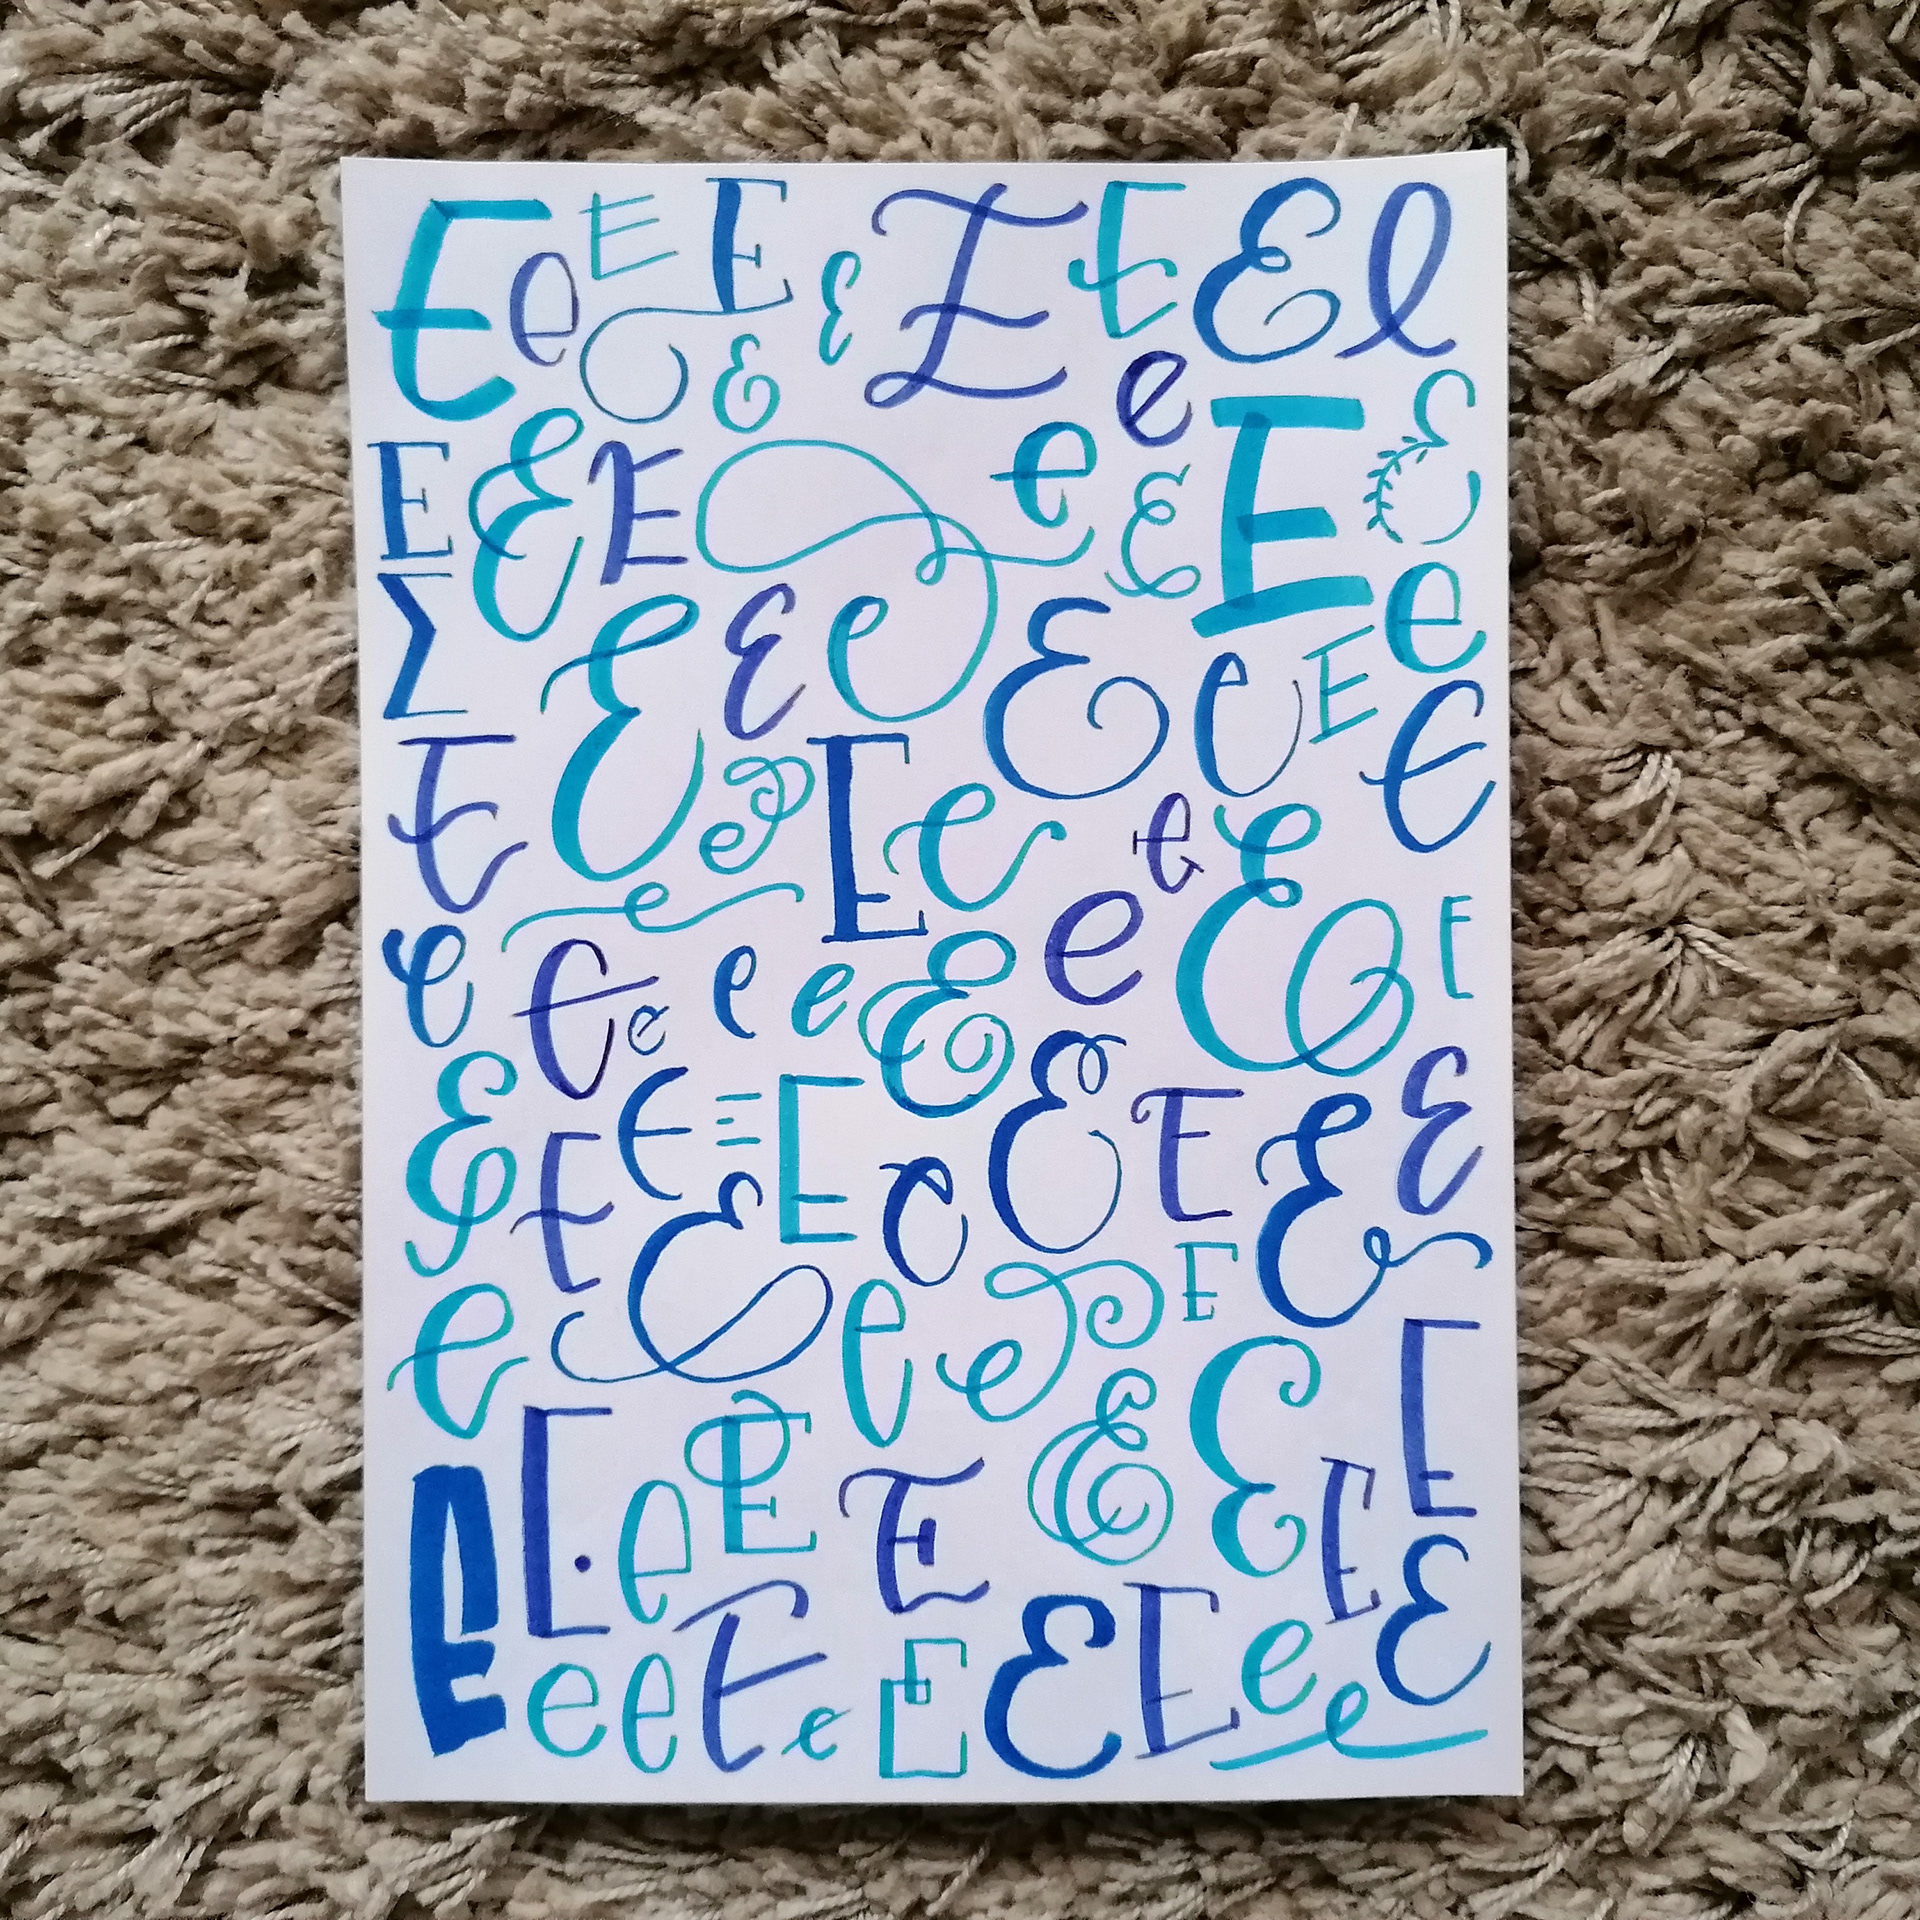 E e E E E E E E e
E e
E E E e E E E
E E E e E e E e
E E e E e e E E
e E e e e E e E
E E E E E e E E E E
e E e e E E E
E E e E E E E E
E e e E e E E E e e E